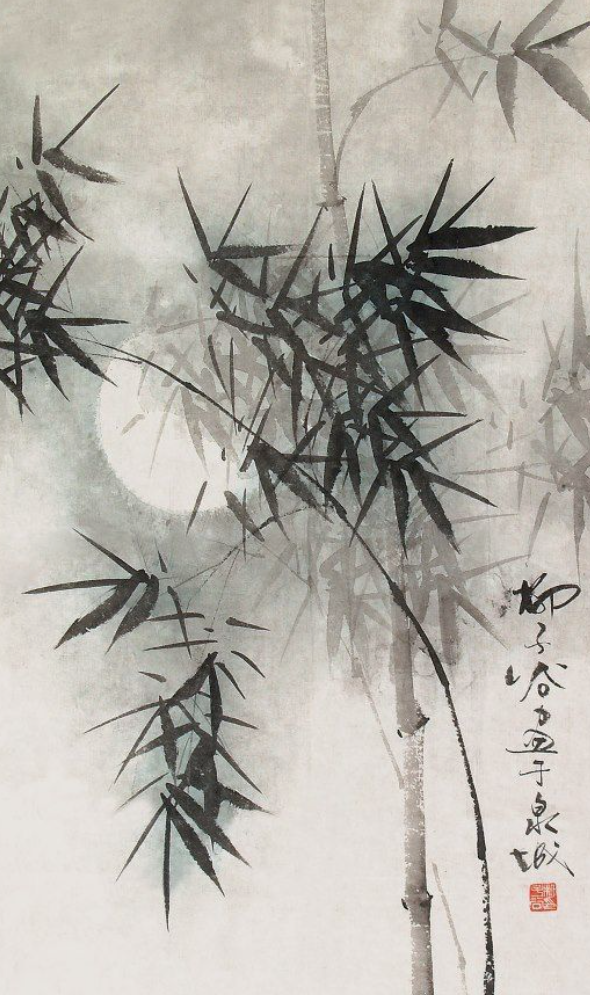 柳子谷畫于泉城